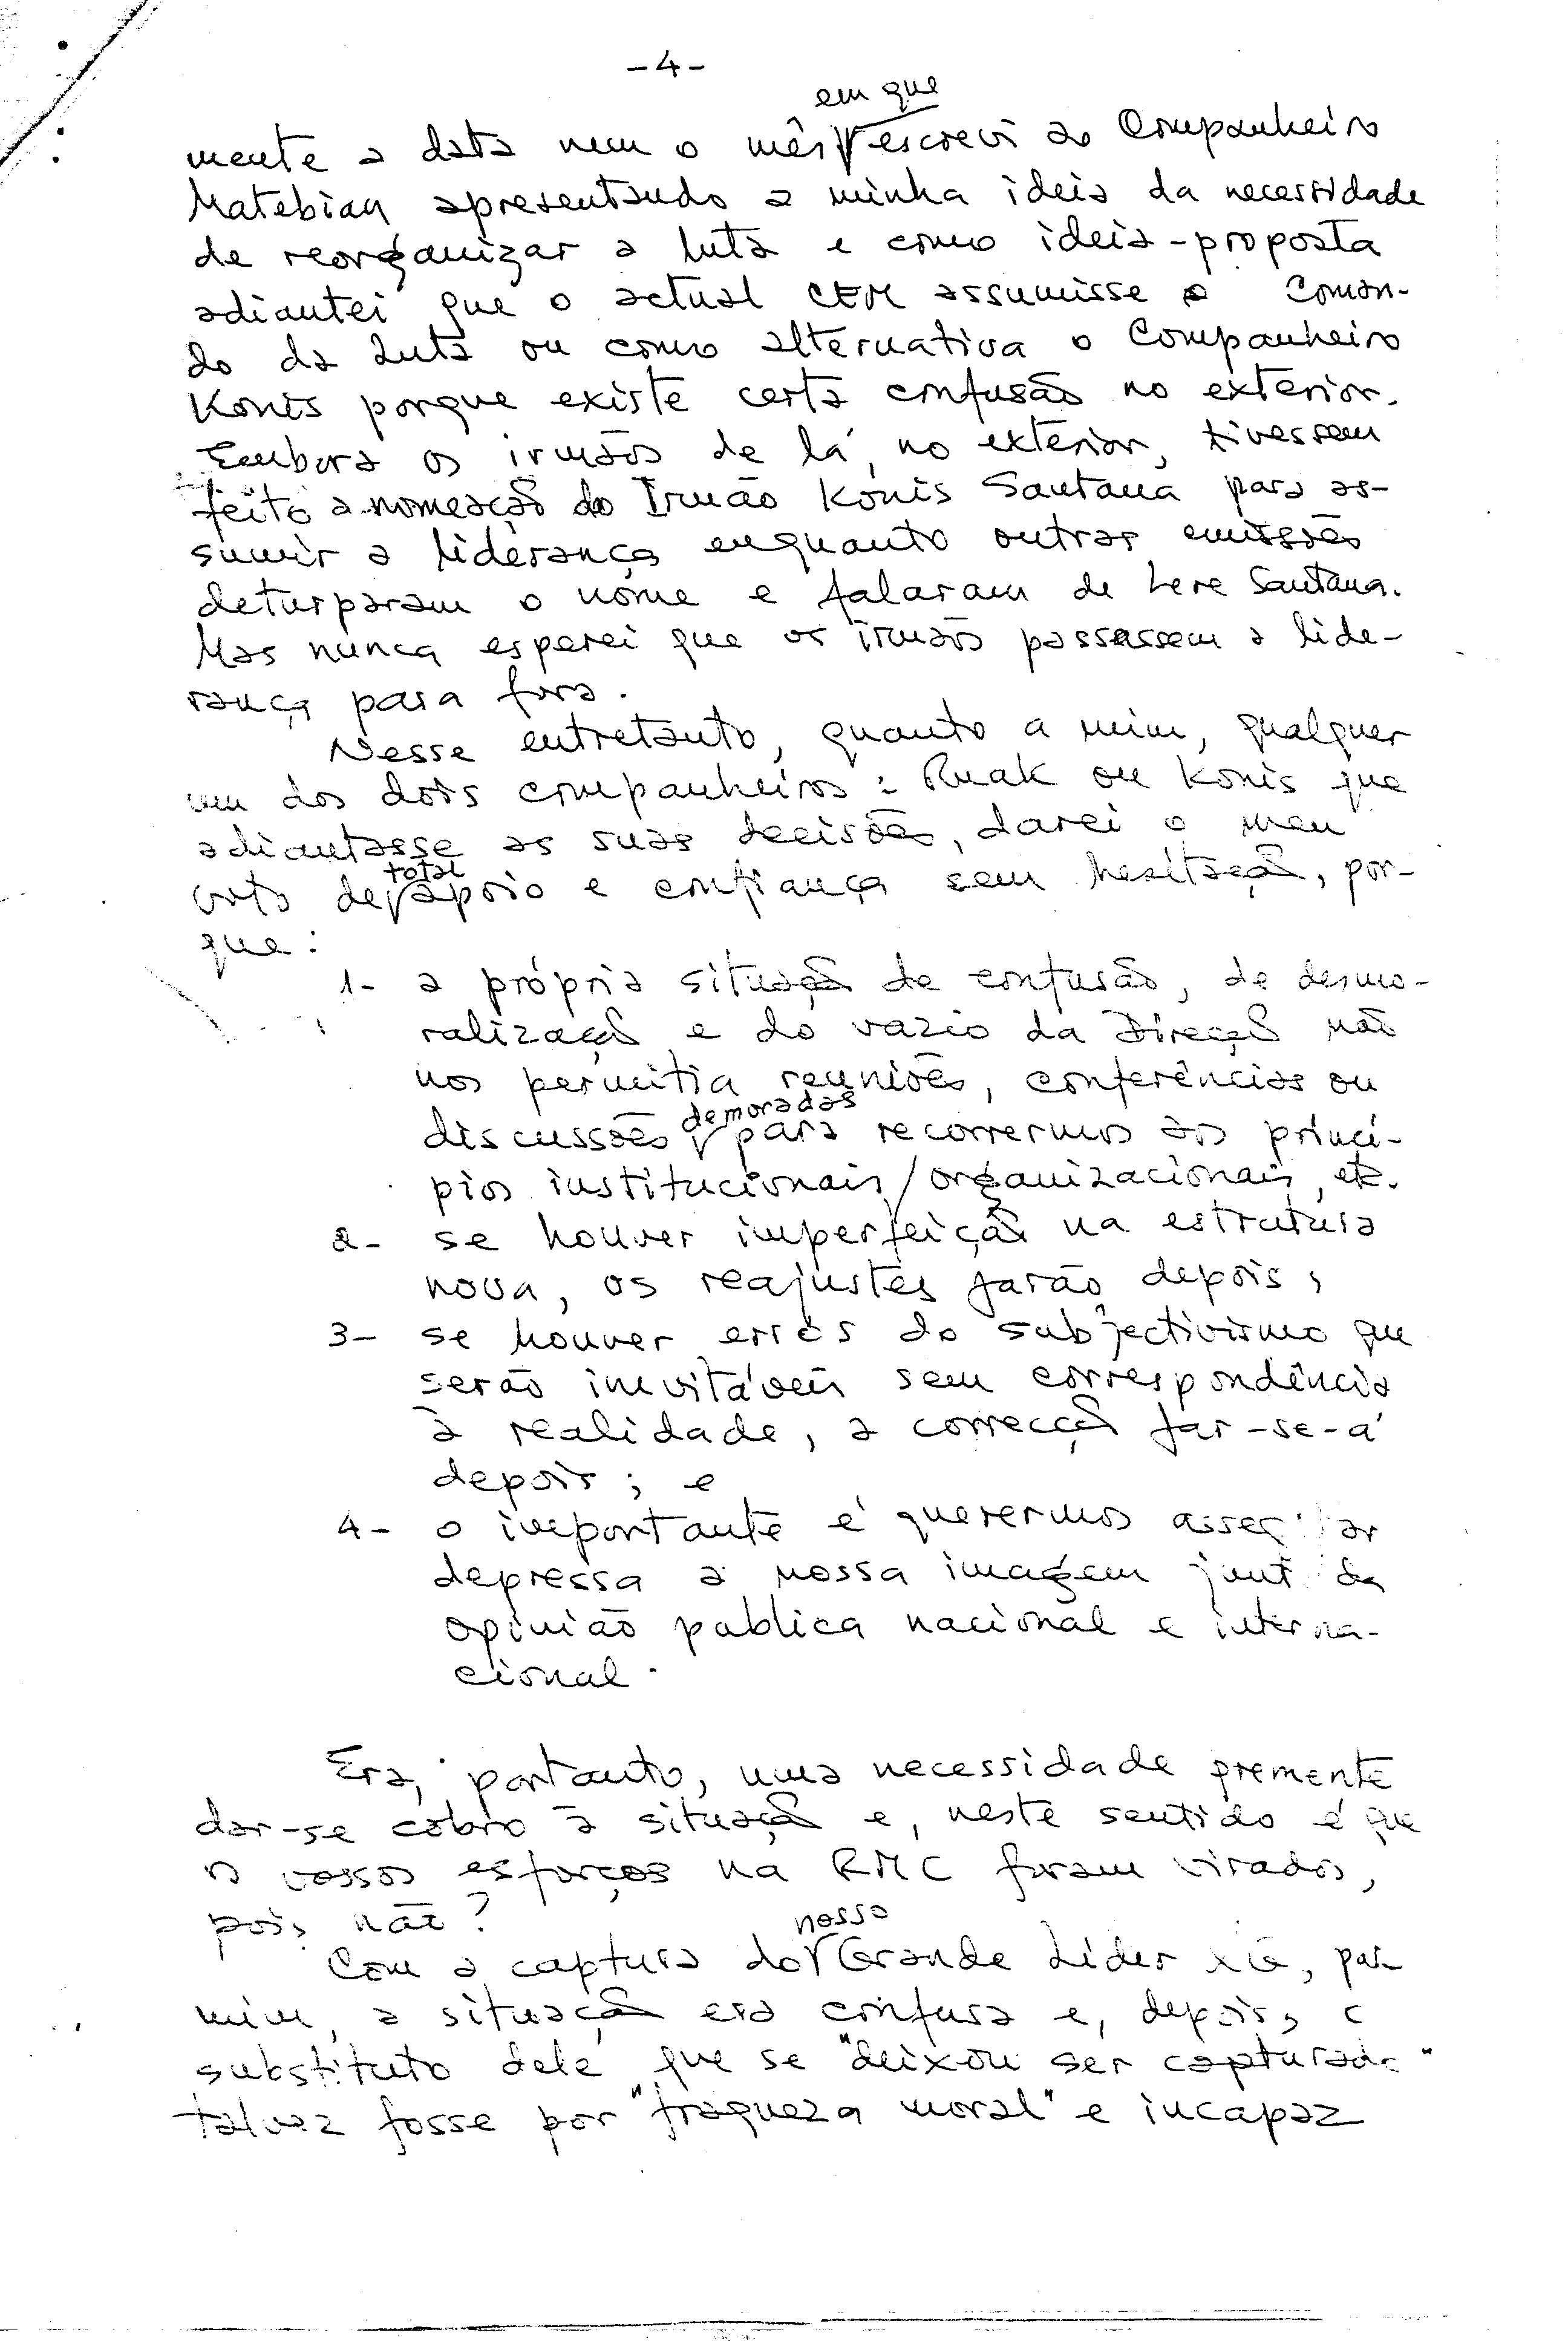 -4-
em que
mente a data nem o mês escrevi ao Companheiro
Matebian apresentando a minha ideia da necessidade
de reorganizar a luta e como ideia-proposta
adiantei que o actual CEM assumisse o Coman-
do da Luta ou como alternativa o Companheiro
Konis porque existe certa confusão no exterior.
Embora os irmãos de lá, no exterior, tivessem
feito a nomeação do Irmão Konis Santana para as-
sumir a liderança enquanto outras emissões
deturparam o nome e falaram de Lere Santana.
Mas nunca esperei que os irmãos passassem a lide-
rança para fora.
Nesse entretanto, quanto a mim, qualquer
um dos dois companheiros: Ruak ou Konis que
adiantasse as suas decisões, darei o meu
total
voto de apoio e confiança sem hesitação, por-
que:
1- a própria situação de confusão, de desmo-
ralização e do vazio da Direcção não
nos permitia reuniões, conferências ou
demoradas
discussões para recorrermos aos princí-
pios institucionais/organizacionais, etc.
2- se houver imperfeição na estrutura
nova, os reajustes farão depois;
3- se houver erros do subjectivismo que
serão inevitáveis sem correspondência
à realidade, a correcção far-se-á
depois; e
4- o importante é querermos
depressa a nossa imagem da
opinião publica nacional e interna-
cional.
Era, portanto, uma necessidade premente
dar-se cobro à situação e, neste sentido é que
os vossos esforços na RMC foram virados,
pois não?
nosso
Com a captura do Grande Líder XG, par
mim, a situação era confusa e, depois, o
substituto dele que se "deixou ser capturado"
talvez fosse por "fraqueza moral" e incapaz